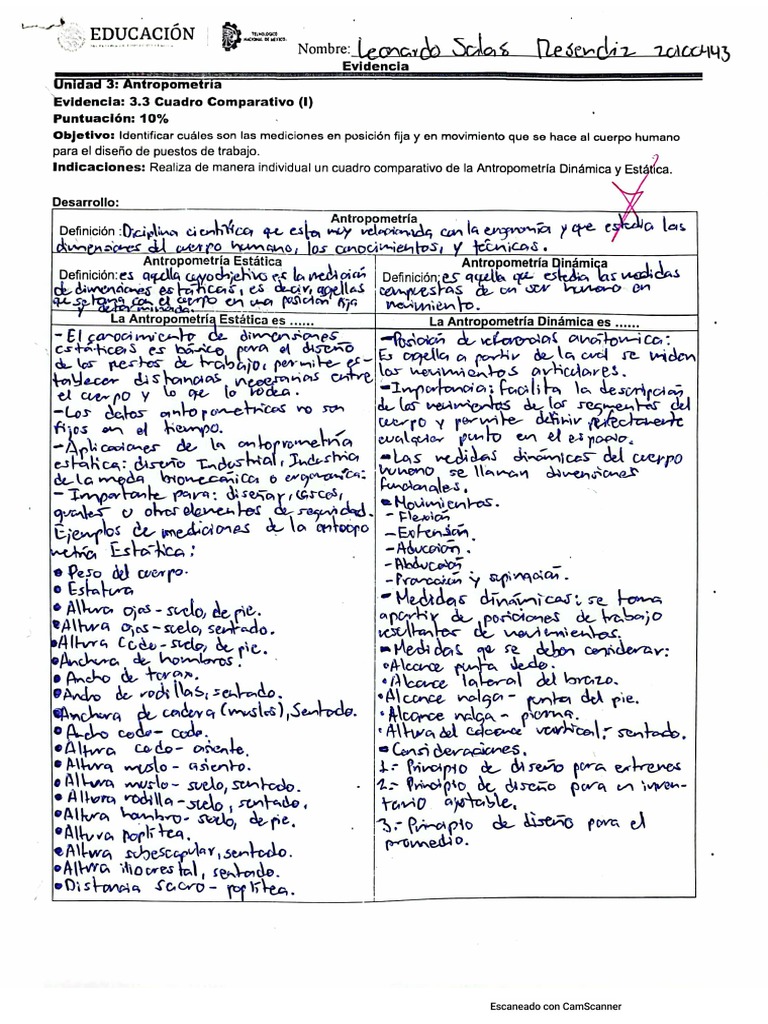 EDUCACIÓN
TECNOLÓGICO
NACIONAL DE MÉXICO
Nombre: Leonardo Salas Resendiz 20100443
Evidencia
Unidad 3: Antropometría
Evidencia: 3.3 Cuadro Comparativo (I)
Puntuación: 10%
Objetivo: Identificar cuáles son las mediciones en posición fija y en movimiento que se hace al cuerpo humano
para el diseño de puestos de trabajo.
Indicaciones: Realiza de manera individual un cuadro comparativo de la Antropometría Dinámica y Estática.
Desarrollo:
Antropometría
Definición : Diciplina cientifica que esta muy relacionada con la ergnomia y que estudia las
dimensiones del cuerpo humano, los conocimientos, y técnicas.
Antropometría Estática
Definición: es aquella cuyo objetivo es la medición
de dimensiones estáticas, es decir, aquellas
que se toma con el cuerpo en una posición fija
y determinada.
La Antropometría Estática es ......
- El conocimiento de dimensiones
estáticas es básico para el diseño
de los pestos de trabajo, permite es-
tablecer distancias necesarias entre
el cuerpo y lo que lo rodea.
- Los datos antopometricos no son
fijos en el tiempo.
- Aplicaciones de la antoprometría
estática: diseño Industrial, Industria
de la moda, biomecánica o ergonomica:
- Importante para: diseñar, cascos,
guantes u otros elementos de seguridad.
Ejemplos de mediciones de la antoopo
metría Estática:
• Peso del cuerpo.
• Estatura
• Altura ojos - suelo, de pie.
• Altura ojos - suelo, sentado.
• Altura Codo - suelo, de pie.
• Anchura de hombros.
• Ancho de torax.
• Ancho de rodillas, sentado.
• Anchura de cadera (muslos), Sentado.
• Ancho codo - codo.
• Altura codo - asiente.
• Altura muslo - asiento.
• Altura muslo - suelo, sentado.
• Altura rodilla - suelo, sentado.
• Altura hombro - suelo, de pie.
• Altura poplítea.
• Altura subescapular, sentado.
• Altura iliocrestal, sentado.
• Distancia sacro - poplítea.
Antropometría Dinámica
Definición: es aquella que estedia las medidas
compuestas de un ser humano en
movimiento.
La Antropometría Dinámica es ......
- Posición de referencias anatomica:
Es aquella a partir de la cual se miden
los movimientos articulares.
- Importancia: facilita la descripción
de los movimientos de los segmentos del
cuerpo y permite definir perfectamente
cualquier punto en el espacio.
- Las medidas dinámicas del cuerpo
humano se llaman dimensiones
funcionales.
• Movimientos.
- Flexión
- Extensión.
- Aducción.
- Abducción
- Pronación y supinación.
- Medidas dinámicas: se toma
apartir de posiciones de trabajo
resultantes de movimientos.
• Medidas que se deben considerar:
• Alcance punta dedo.
• Alcance lateral del brazo.
• Alcance nalga - punta del pie.
• Alcance nalga - pierna.
• Altura del alcance vertical - sentado.
• Consideraciones.
1.- Principio de diseño para extremos
2.- Principio de diseño para un inven-
tario ajustable.
3.- Principio de diseño para el
promedio.
Escaneado con CamScanner